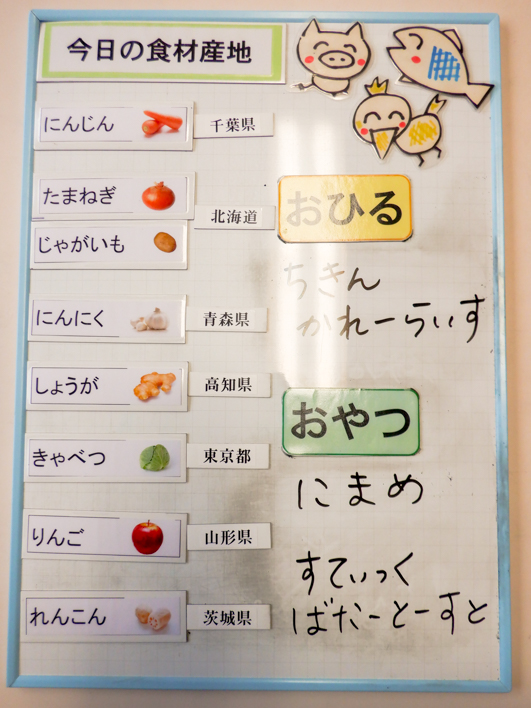 今日の食材産地
にんじん 千葉県
たまねぎ
北海道
じゃがいも
にんにく 青森県
しょうが 高知県
きゃべつ 東京都
りんご 山形県
れんこん 茨城県
おひる
ちきん
かれーらいす
おやつ
にまめ
すてぃっく
ばたーとーすと